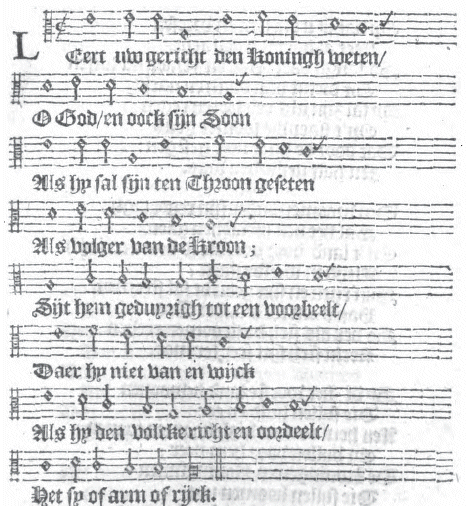 LEert uw gericht den Koningh weten/
O God/en oock sijn Soon
Als hy sal sijn ten Throon geseten
Als volger van de Kroon;
Sijt hem geduyrigh tot een voorbeelt/
Daer hy niet van en wijck
Als hy den volcke richt en oordeelt/
Het sy of arm of rijck.